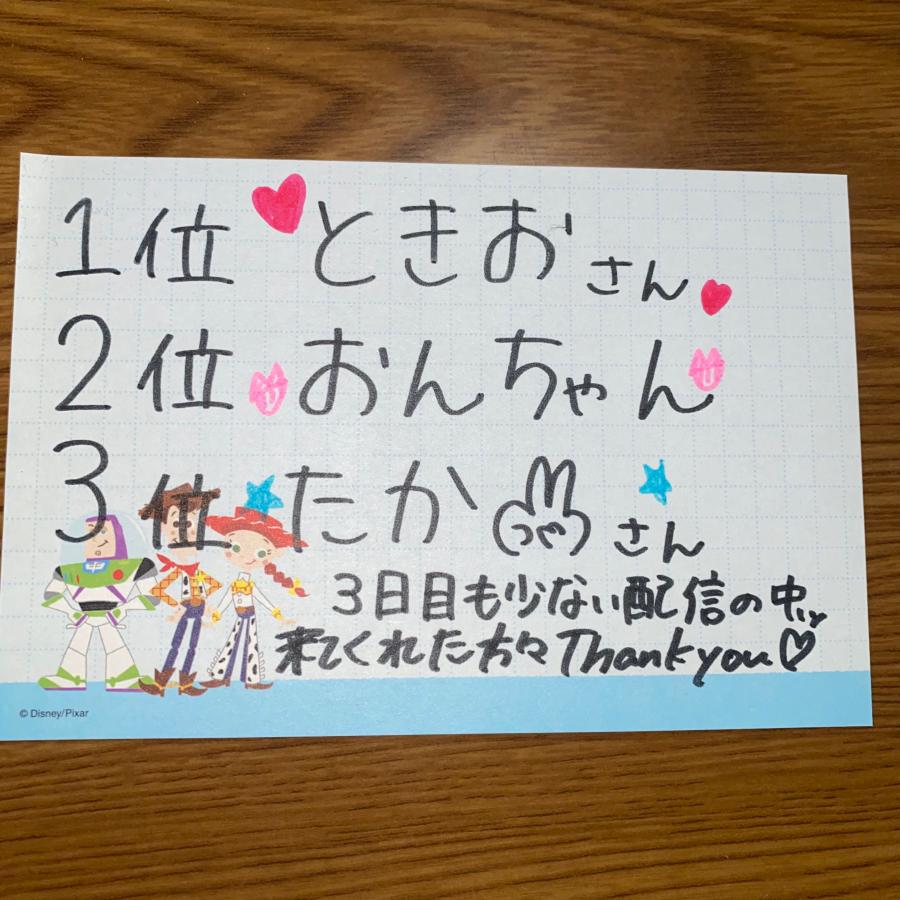 1位 ときおさん
2位 おんちゃん
3位 たか さん
3日目も少ない配信の中
来てくれた方々 Thank you♡
© Disney/Pixar